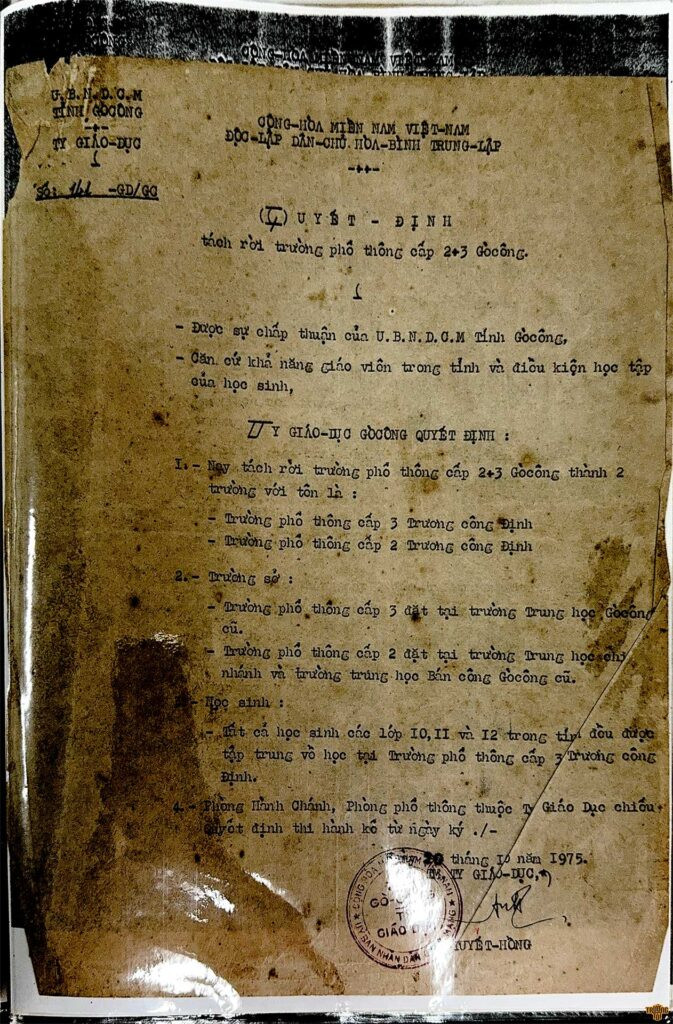 U.B.N.D.C.M
TỈNH GÒCÔNG
TY GIÁO-DỤC
Số: 161 -GD/GC
CỘNG-HÒA MIỀN NAM VIỆT-NAM
ĐỘC-LẬP DÂN-CHỦ HÒA-BÌNH TRUNG-LẬP
QUYẾT - ĐỊNH
tách rời trường phổ thông cấp 2+3 Gòcông.
- Được sự chấp thuận của U.B.N.D.C.M Tỉnh Gòcông,
- Căn cứ khả năng giáo viên trong tỉnh và điều kiện học tập
của học sinh,
TY GIÁO-DỤC GÒCÔNG QUYẾT ĐỊNH :
I.- Nay tách rời trường phổ thông cấp 2+3 Gòcông thành 2
trường với tên là :
- Trường phổ thông cấp 3 Trương công Định
- Trường phổ thông cấp 2 Trương công Định
2.- Trường sở :
- Trường phổ thông cấp 3 đặt tại trường Trung học Gòcông
cũ.
- Trường phổ thông cấp 2 đặt tại trường Trung học chi
nhánh và trường trung học Bán công Gòcông cũ.
- Học sinh :
- Tất cả học sinh các lớp I0,II và I2 trong tỉnh đều được
tập trung về học tại Trường phổ thông cấp 3 Trương công
Định.
4.- Phòng Hành Chánh, Phòng phổ thông thuộc Ty Giáo Dục chiếu
Quyết định thi hành kể từ ngày ký ./-
20 tháng 10 năm 1975.
TY GIÁO-DỤC,
GIÁO DỤC
TUYẾT-HỒNG